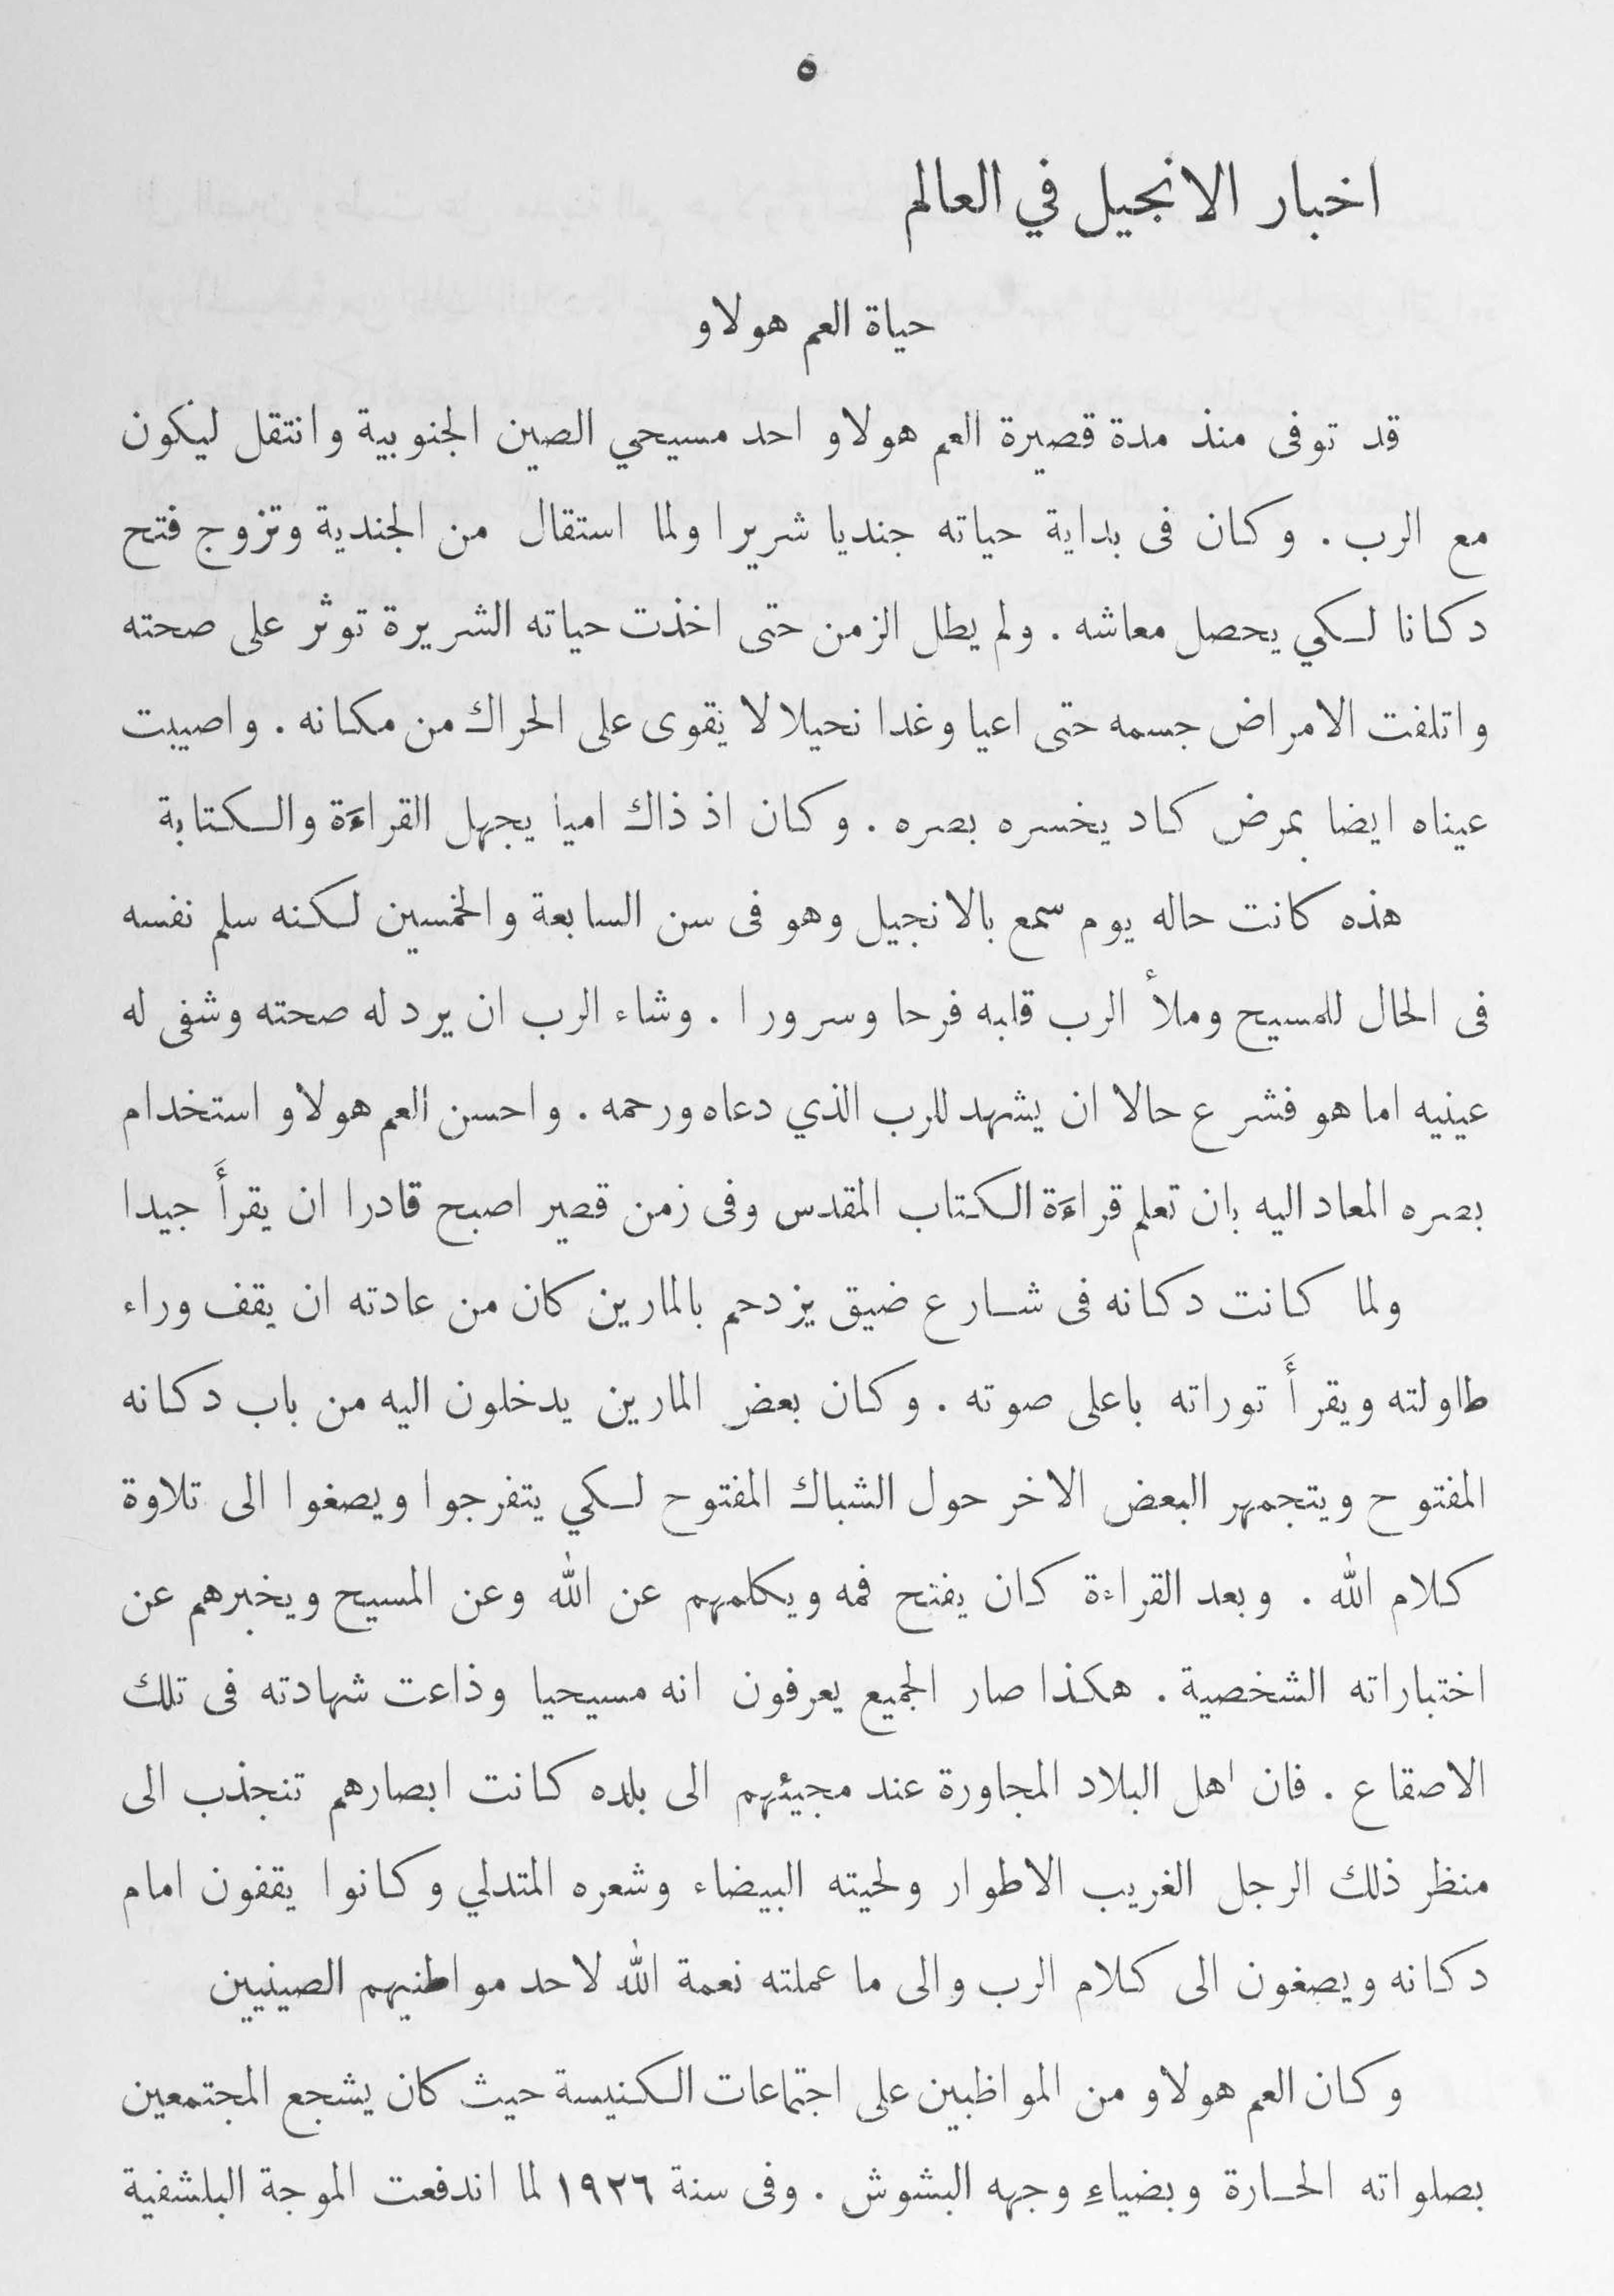 ٥
اخبار الانجيل في العالم
حياة العم هولاو
قد توفى منذ مدة قصيرة العم هولاو احد مسيحي الصين الجنوبية وانتقل ليكون
مع الرب . وكان فى بداية حياته جنديا شريرا ولما استقال من الجندية وتزوج فتح
دكانا لكي يحصل معاشه . ولم يطل الزمن حتى اخذت حياته الشريرة توثر على صحته
واتلفت الامراض جسمه حتى اعيا وغدا نحيلا لا يقوى على الحراك من مكانه . واصيبت
عيناه ايضا بمرض كاد يخسره بصره . وكان اذ ذاك اميا يجهل القراءَة والكتابة
هذه كانت حاله يوم سمع بالانجيل وهو فى سن السابعة والخمسين لكنه سلم نفسه
فى الحال للمسيح وملأ الرب قلبه فرحا وسرورا . وشاء الرب ان يرد له صحته وشفى له
عينيه اما هو فشرع حالا ان يشهد للرب الذي دعاه ورحمه . واحسن العم هولاو استخدام
بصره المعاد اليه بان تعلم قراءَة الكتاب المقدس وفى زمن قصير اصبح قادرا ان يقرأَ جيدا
ولما كانت دكانه فى شارع ضيق يزدحم بالمارين كان من عادته ان يقف وراء
طاولته ويقرأَ توراته باعلى صوته . وكان بعض المارين يدخلون اليه من باب دكانه
المفتوح ويتجمهر البعض الاخر حول الشباك المفتوح لكي يتفرجوا ويصغوا الى تلاوة
كلام الله . وبعد القراءة كان يفتح فمه ويكلمهم عن الله وعن المسيح ويخبرهم عن
اختباراته الشخصية . هكذا صار الجميع يعرفون انه مسيحيا وذاعت شهادته فى تلك
الاصقاع . فان اهل البلاد المجاورة عند مجيئهم الى بلده كانت ابصارهم تنجذب الى
منظر ذلك الرجل الغريب الاطوار ولحيته البيضاء وشعره المتدلي وكانوا يقفون امام
دكانه ويصغون الى كلام الرب والى ما عملته نعمة الله لاحد مواطنيهم الصينيين
وكان العم هولاو من المواظبين على اجتماعات الكنيسة حيث كان يشجع المجتمعين
بصلواته الحارة وبضياءِ وجهه البشوش . وفى سنة ١٩٢٦ لما اندفعت الموجة البلشفية